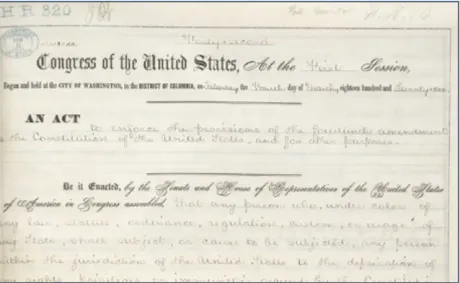 H R 320
Forty-second
Congress of the United States, At the First Session,
Begun and held at the CITY OF WASHINGTON, in the DISTRICT OF COLUMBIA, on Saturday, the Fourth day of March, eighteen hundred and Seventy-one.
AN ACT
to enforce the provisions of the fourteenth amendment
to the Constitution of the United States, and for other purposes.
Be it Enacted, by the Senate and House of Representatives of the United States
of America in Congress assembled, That any person who, under color of
any law, statute, ordinance, regulation, custom, or usage of
any State, shall subject, or cause to be subjected, any person
within the jurisdiction of the United States to the deprivation of
any rights, privileges, or immunities secured by the Constitu